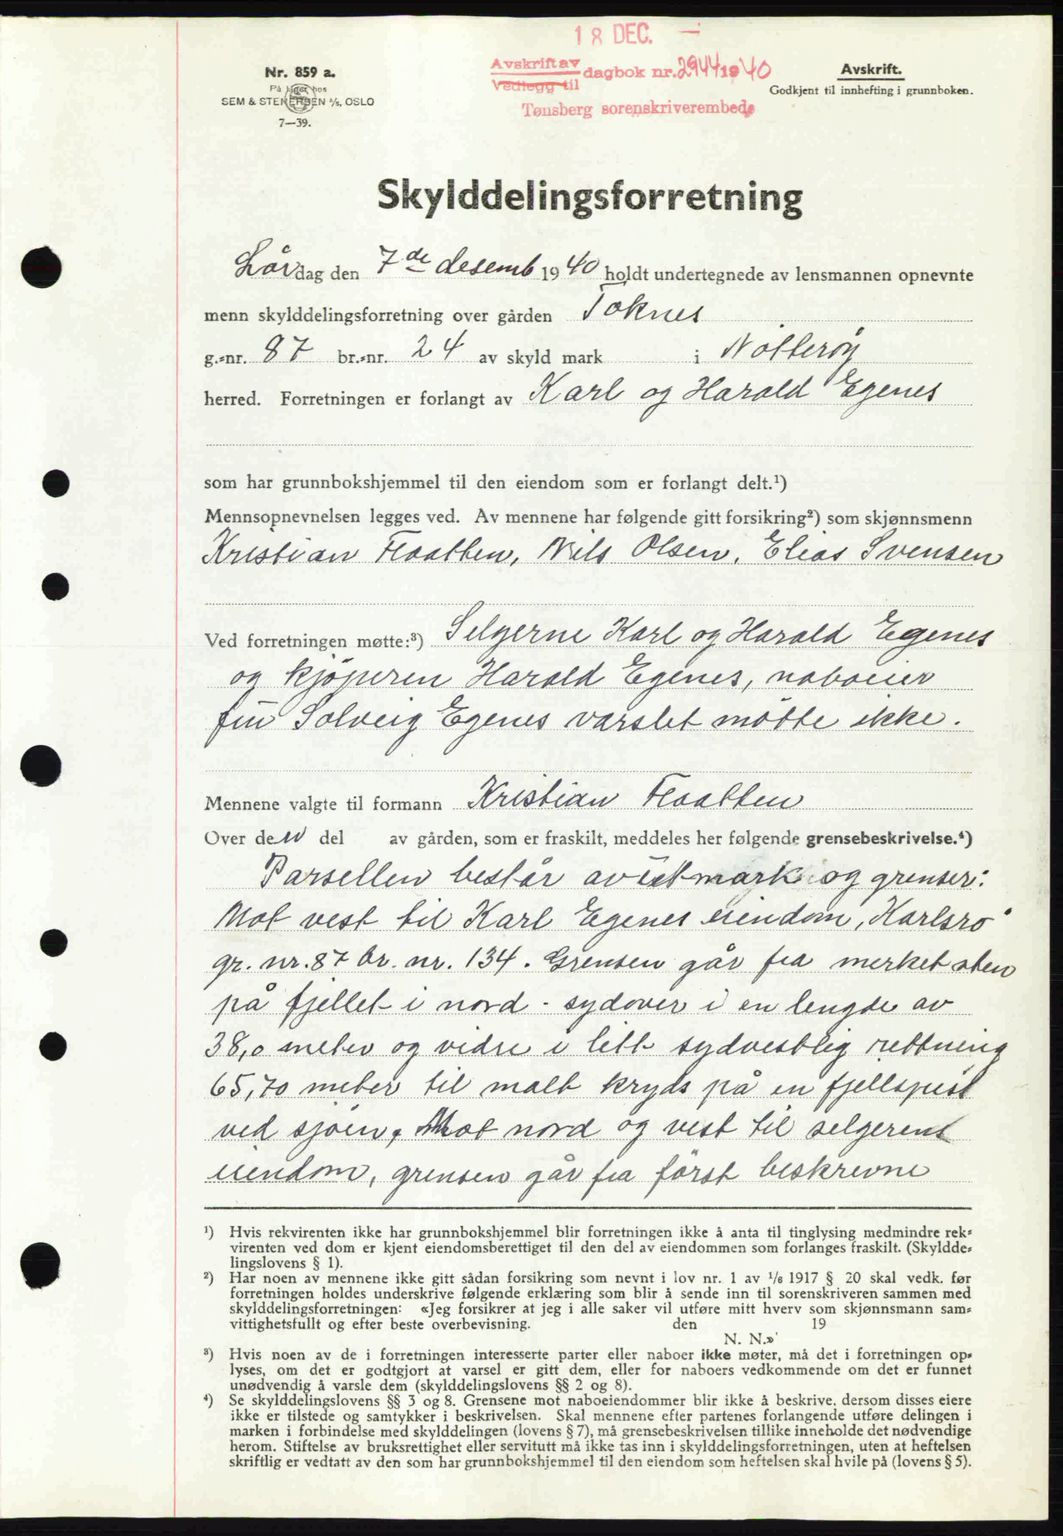 18 DEC.
Nr. 859 a.
På lager hos
SEM & STENERSEN A/S, OSLO
7—39.
Avskrift av
Vedlegg til
dagbok nr. 2944 1940
Tønsberg sorenskriverembede
Avskrift.
Godkjent til innhefting i grunnboken.
Skylddelingsforretning
Lørdag den 7de desemb 1940 holdt undertegnede av lensmannen opnevnte
menn skylddelingsforretning over gården Toknes
g.-nr. 87 br.-nr. 24 av skyld mark i Nøtterøy
herred. Forretningen er forlangt av Karl og Harald Egenes
som har grunnbokshjemmel til den eiendom som er forlangt delt.¹)
Mennsopnevnelsen legges ved. Av mennene har følgende gitt forsikring²) som skjønnsmenn
Kristian Flaatten, Nils Olsen, Elias Svensen
Ved forretningen møtte:³) Selgerne Karl og Harald Egenes
og kjøperen Harald Egenes, naboeier
frü Solveig Egenes varslet møtte ikke.
Mennene valgte til formann Kristian Flaatten
Over den del av gården, som er fraskilt, meddeles her følgende grensebeskrivelse.⁴)
Parsellen består av utmark og grenser:
Mot vest til Karl Egenes eiendom, Karlsro"
gr. nr. 87 br. nr. 134. Grensen går fra merket sten
på fjellet i nord - sydover i en lengde av
38,0 meter og vidre i litt sydvestlig rettning
65,70 meter til malt kryds på en fjellspiss
ved sjøen, Mot nord og vest til selgerens
eiendom, grensen går fra først beskrevne
¹) Hvis rekvirenten ikke har grunnbokshjemmel blir forretningen ikke å anta til tinglysing medmindre rek-
virenten ved dom er kjent eiendomsberettiget til den del av eiendommen som forlanges fraskilt. (Skyldde-
lingslovens § 1).
²) Har noen av mennene ikke gitt sådan forsikring som nevnt i lov nr. 1 av 1/6 1917 § 20 skal vedk. før
forretningen holdes underskrive følgende erklæring som blir å sende inn til sorenskriveren sammen med
skylddelingsforretningen: «Jeg forsikrer at jeg i alle saker vil utføre mitt hverv som skjønnsmann sam-
vittighetsfullt og efter beste overbevisning. den 19
N. N.»
³) Hvis noen av de i forretningen interesserte parter eller naboer ikke møter, må det i forretningen op-
lyses, om det er godtgjort at varsel er gitt dem, eller for naboers vedkommende om det er funnet
unødvendig å varsle dem (skylddelingslovens §§ 2 og 8).
⁴) Se skylddelingslovens §§ 3 og 8. Grensene mot naboeiendommer blir ikke å beskrive, dersom disses eiere
ikke er tilstede og samtykker i beskrivelsen. Skal mennene efter partenes forlangende utføre delingen i
marken i forbindelse med skylddelingen (lovens § 7), må grensebeskrivelsen tillike inneholde det nødvendige
herom. Stiftelse av bruksrettighet eller servitutt må ikke tas inn i skylddelingsforretningen, uten at heftelsen
skriftlig er vedtatt av den som har grunnbokshjemmel til den eiendom som heftelsen skal hvile på (lovens § 5).